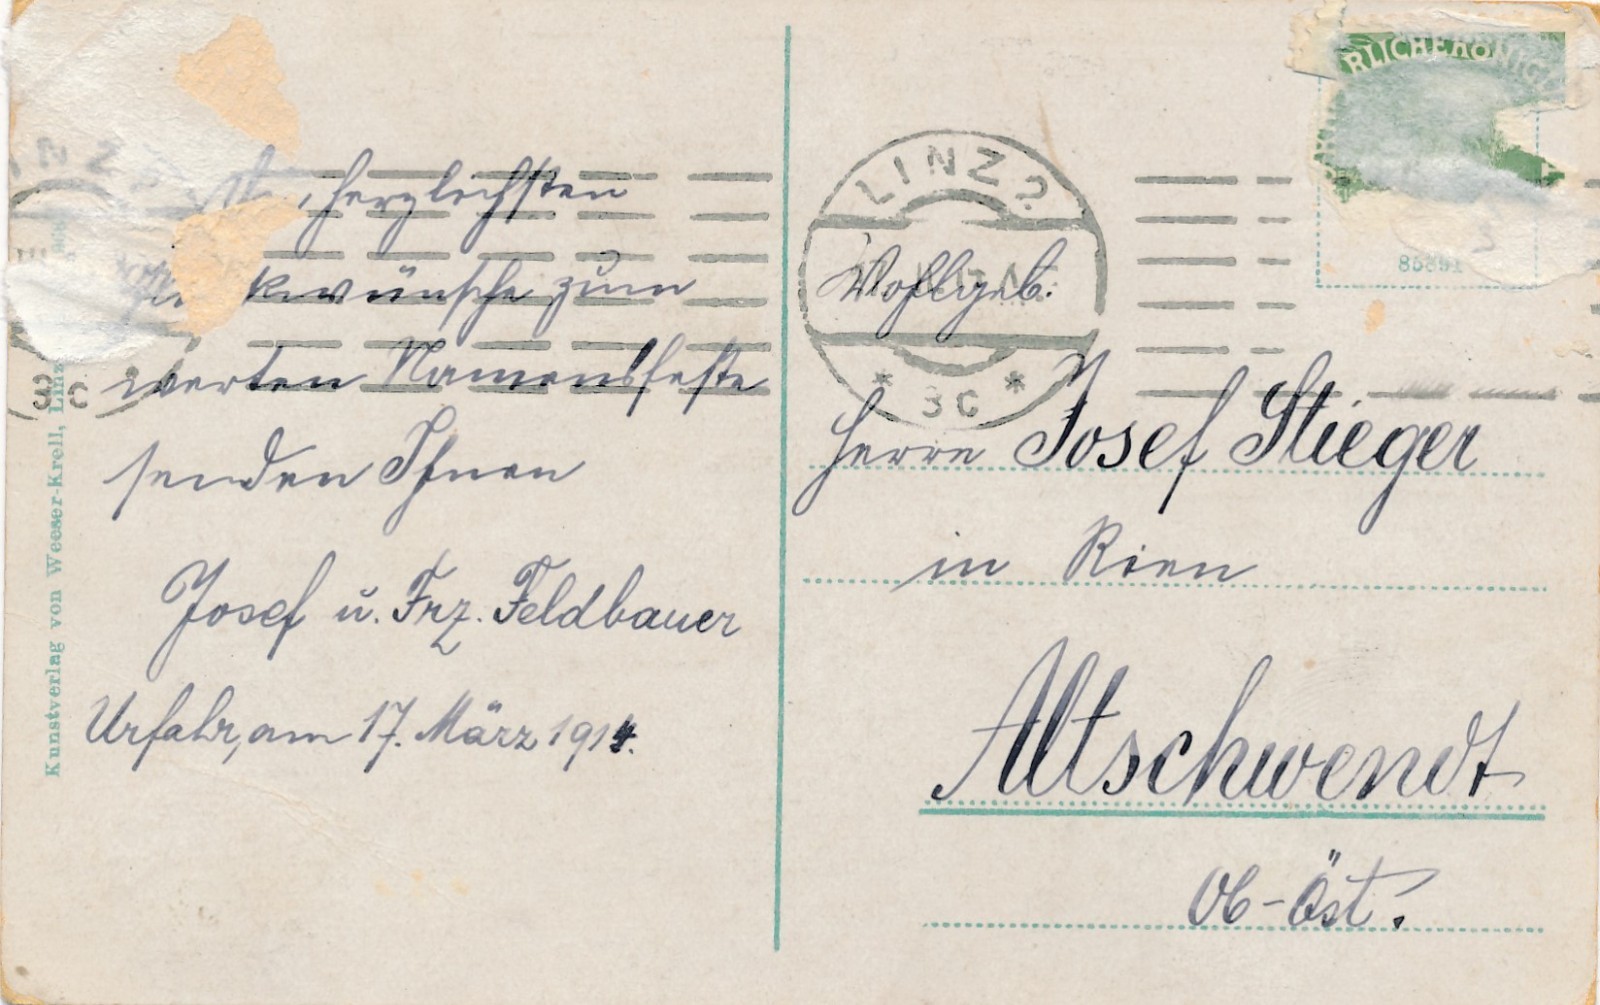 herzlichsten
wünsche zum
werten Namensfeste
senden Ihnen
Josef u. Frz. Feldbauer
Urfahr, am 17. März 1914.
Kunstverlag von Weeser-Krell, Linz
LINZ 2
* 3c *
RLICHEKÖNIGL
Wohlgeb.
Herrn Josef Stieger
in Rien
Altschwendt
Ob-Öst.